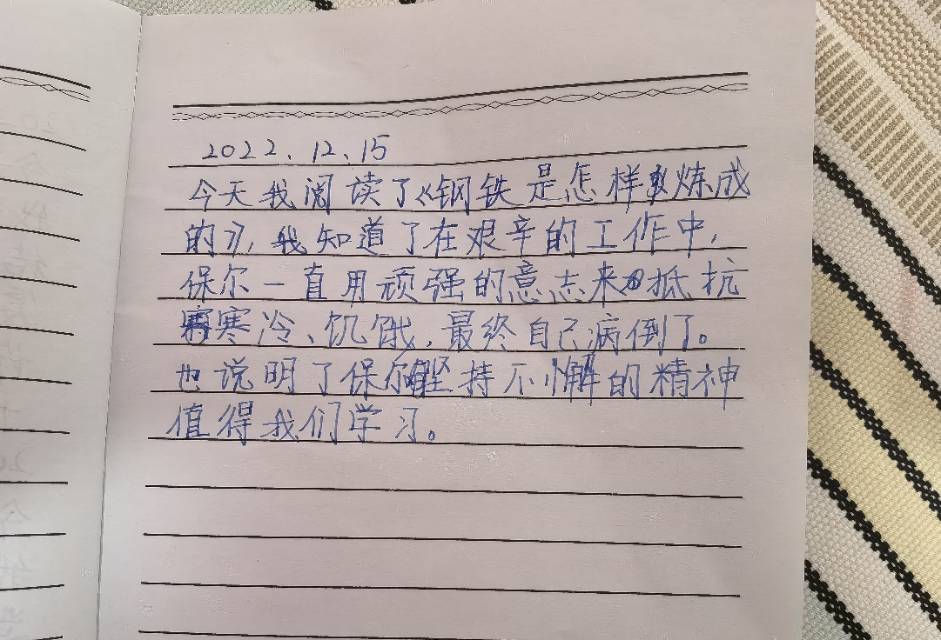 2022.12.15
今天我阅读了《钢铁是怎样炼成
的》,我知道了在艰辛的工作中,
保尔一直用顽强的意志来抵抗
寒冷、饥饿,最终自己病倒了。
也说明了保尔坚持不懈的精神
值得我们学习。